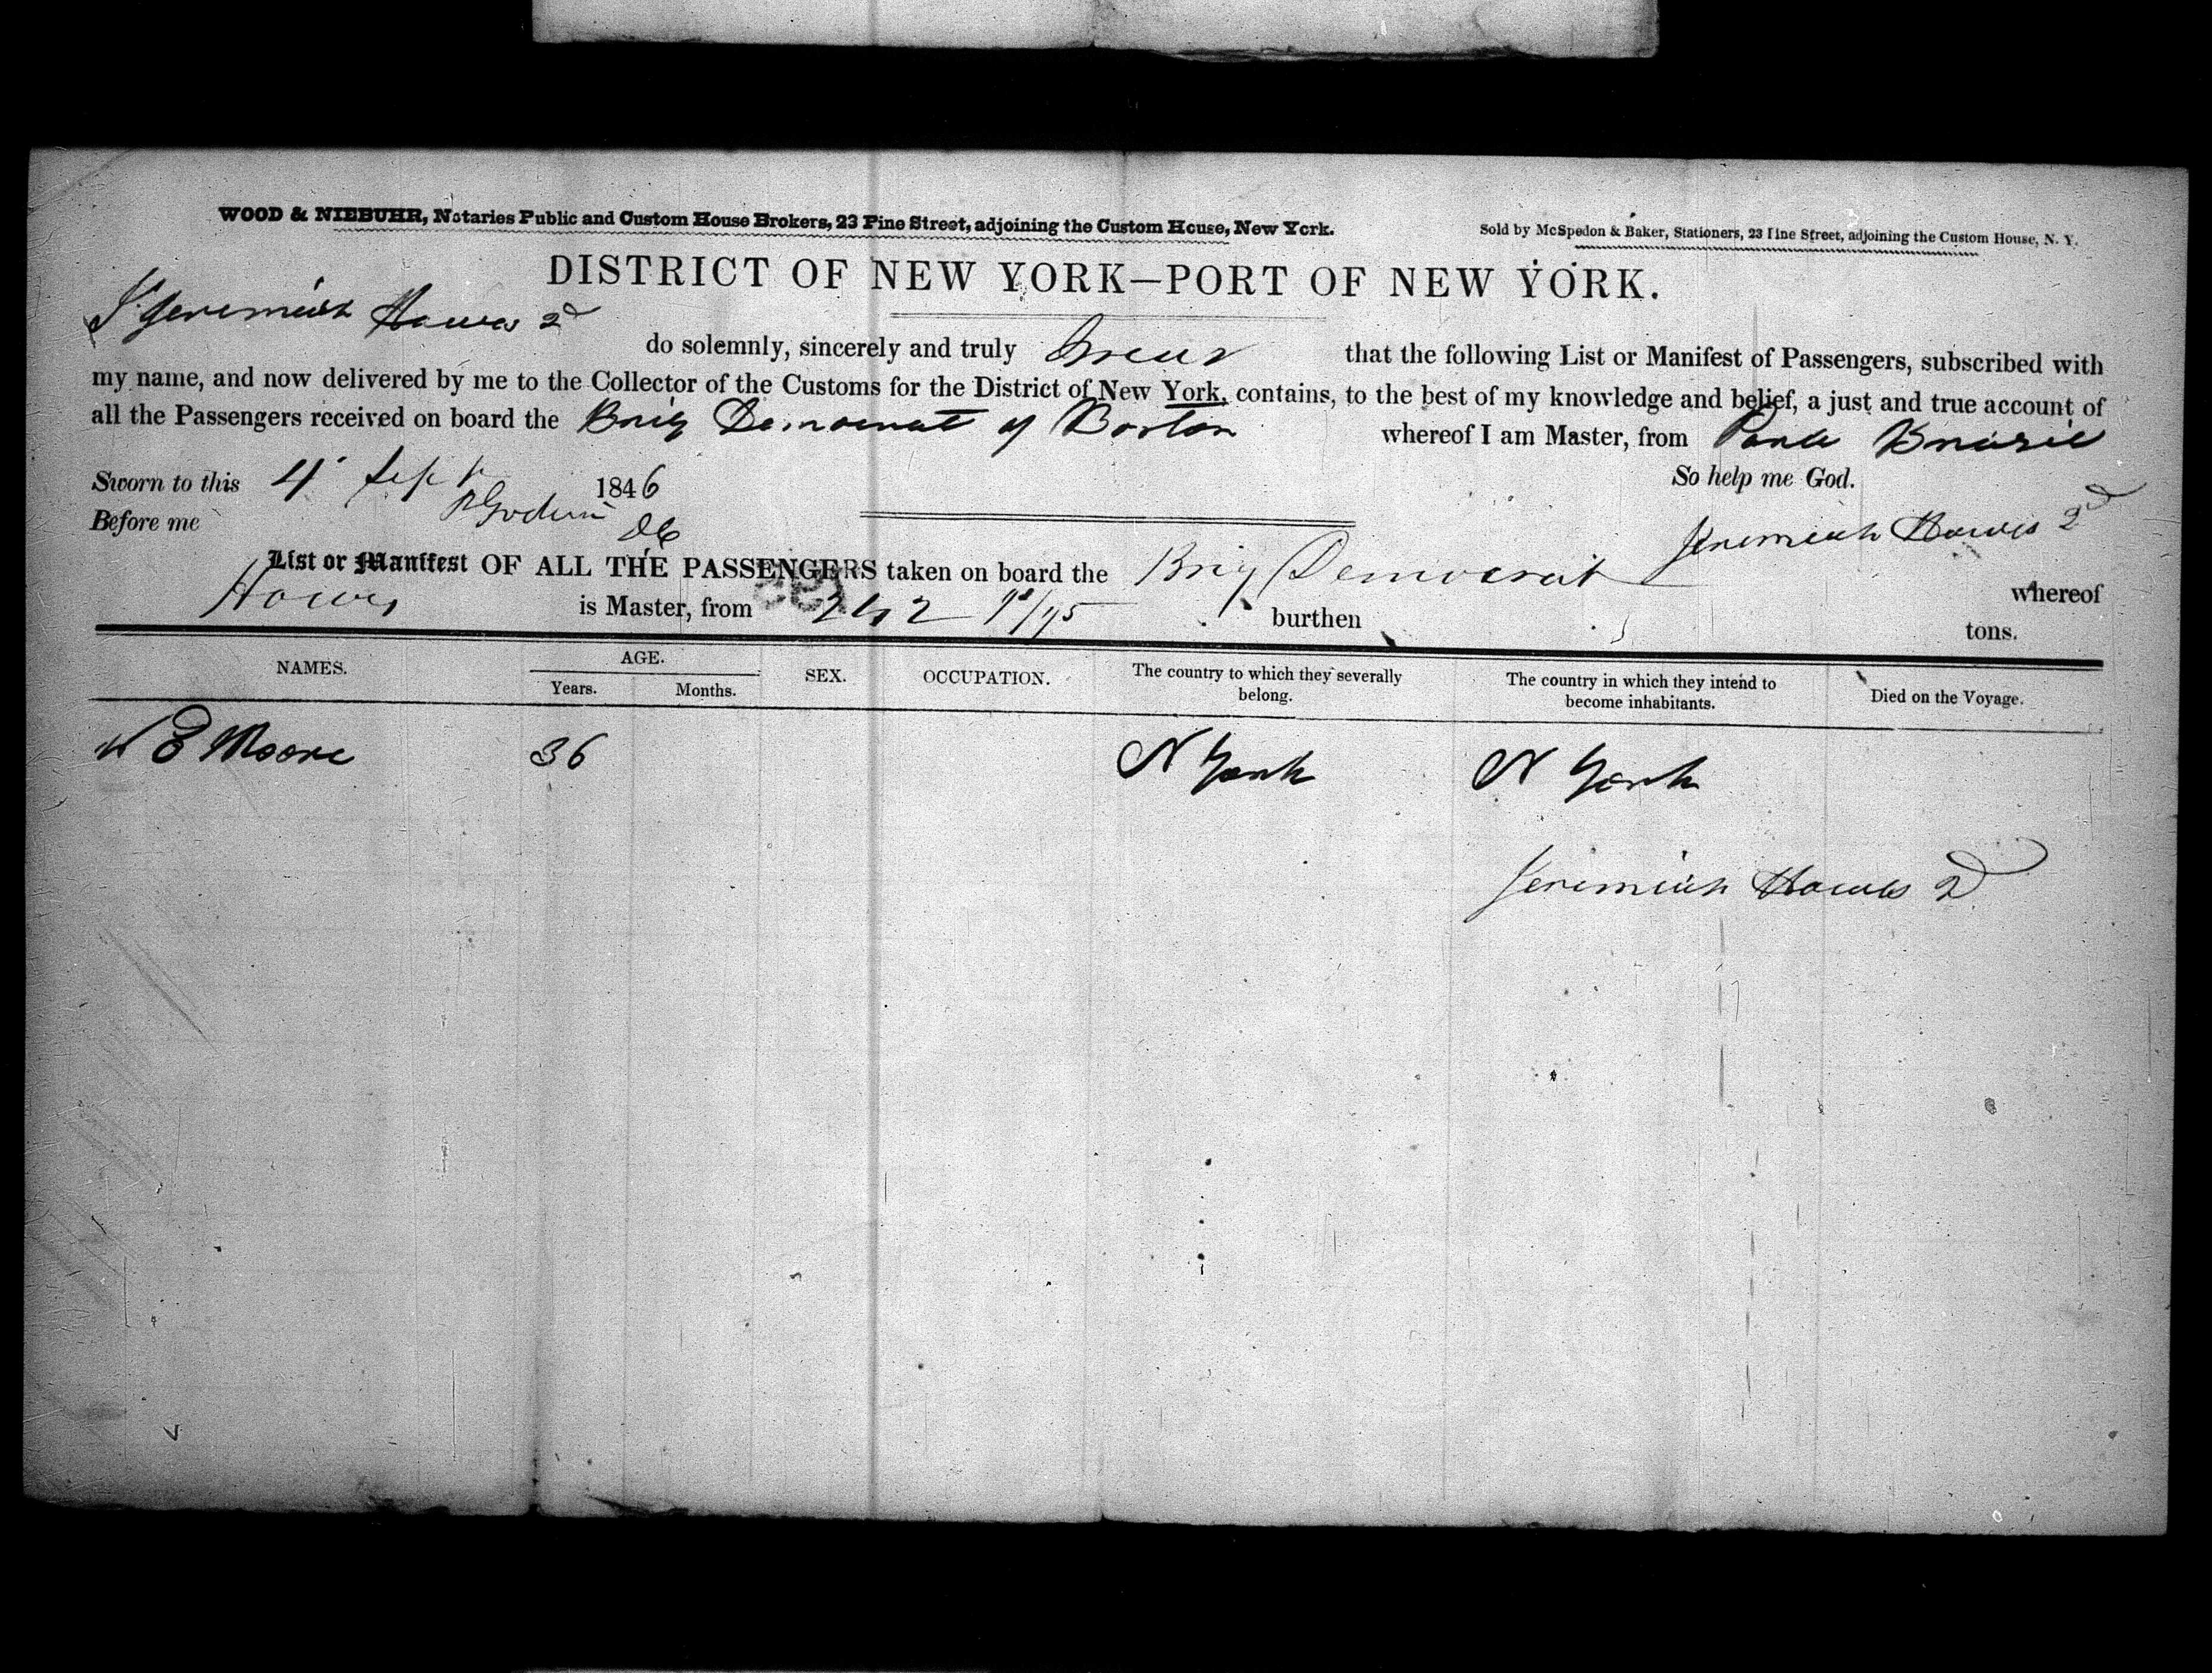 WOOD & NIEBUHR, Notaries Public and Custom House Brokers, 23 Pine Street, adjoining the Custom House, New York.
Sold by McSpedon & Baker, Stationers, 23 Pine Street, adjoining the Custom House, N. Y.
DISTRICT OF NEW YORK—PORT OF NEW YORK.
I Jeremiah Howes 2d
do solemnly, sincerely and truly Swear that the following List or Manifest of Passengers, subscribed with
my name, and now delivered by me to the Collector of the Customs for the District of New York, contains, to the best of my knowledge and belief, a just and true account of
all the Passengers received on board the Brig Democrat of Boston whereof I am Master, from Para Brazil
Sworn to this 4 Sept 1846 So help me God.
Before me
Jeremiah Howes 2d
List or Manifest OF ALL THE PASSENGERS taken on board the Brig Democrat whereof
Howes is Master, from burthen tons.
NAMES. AGE. SEX. OCCUPATION. The country to which they severally belong. The country in which they intend to become inhabitants. Died on the Voyage.
Years. Months.
W E Moore 36 N York N York
Jeremiah Howes 2d